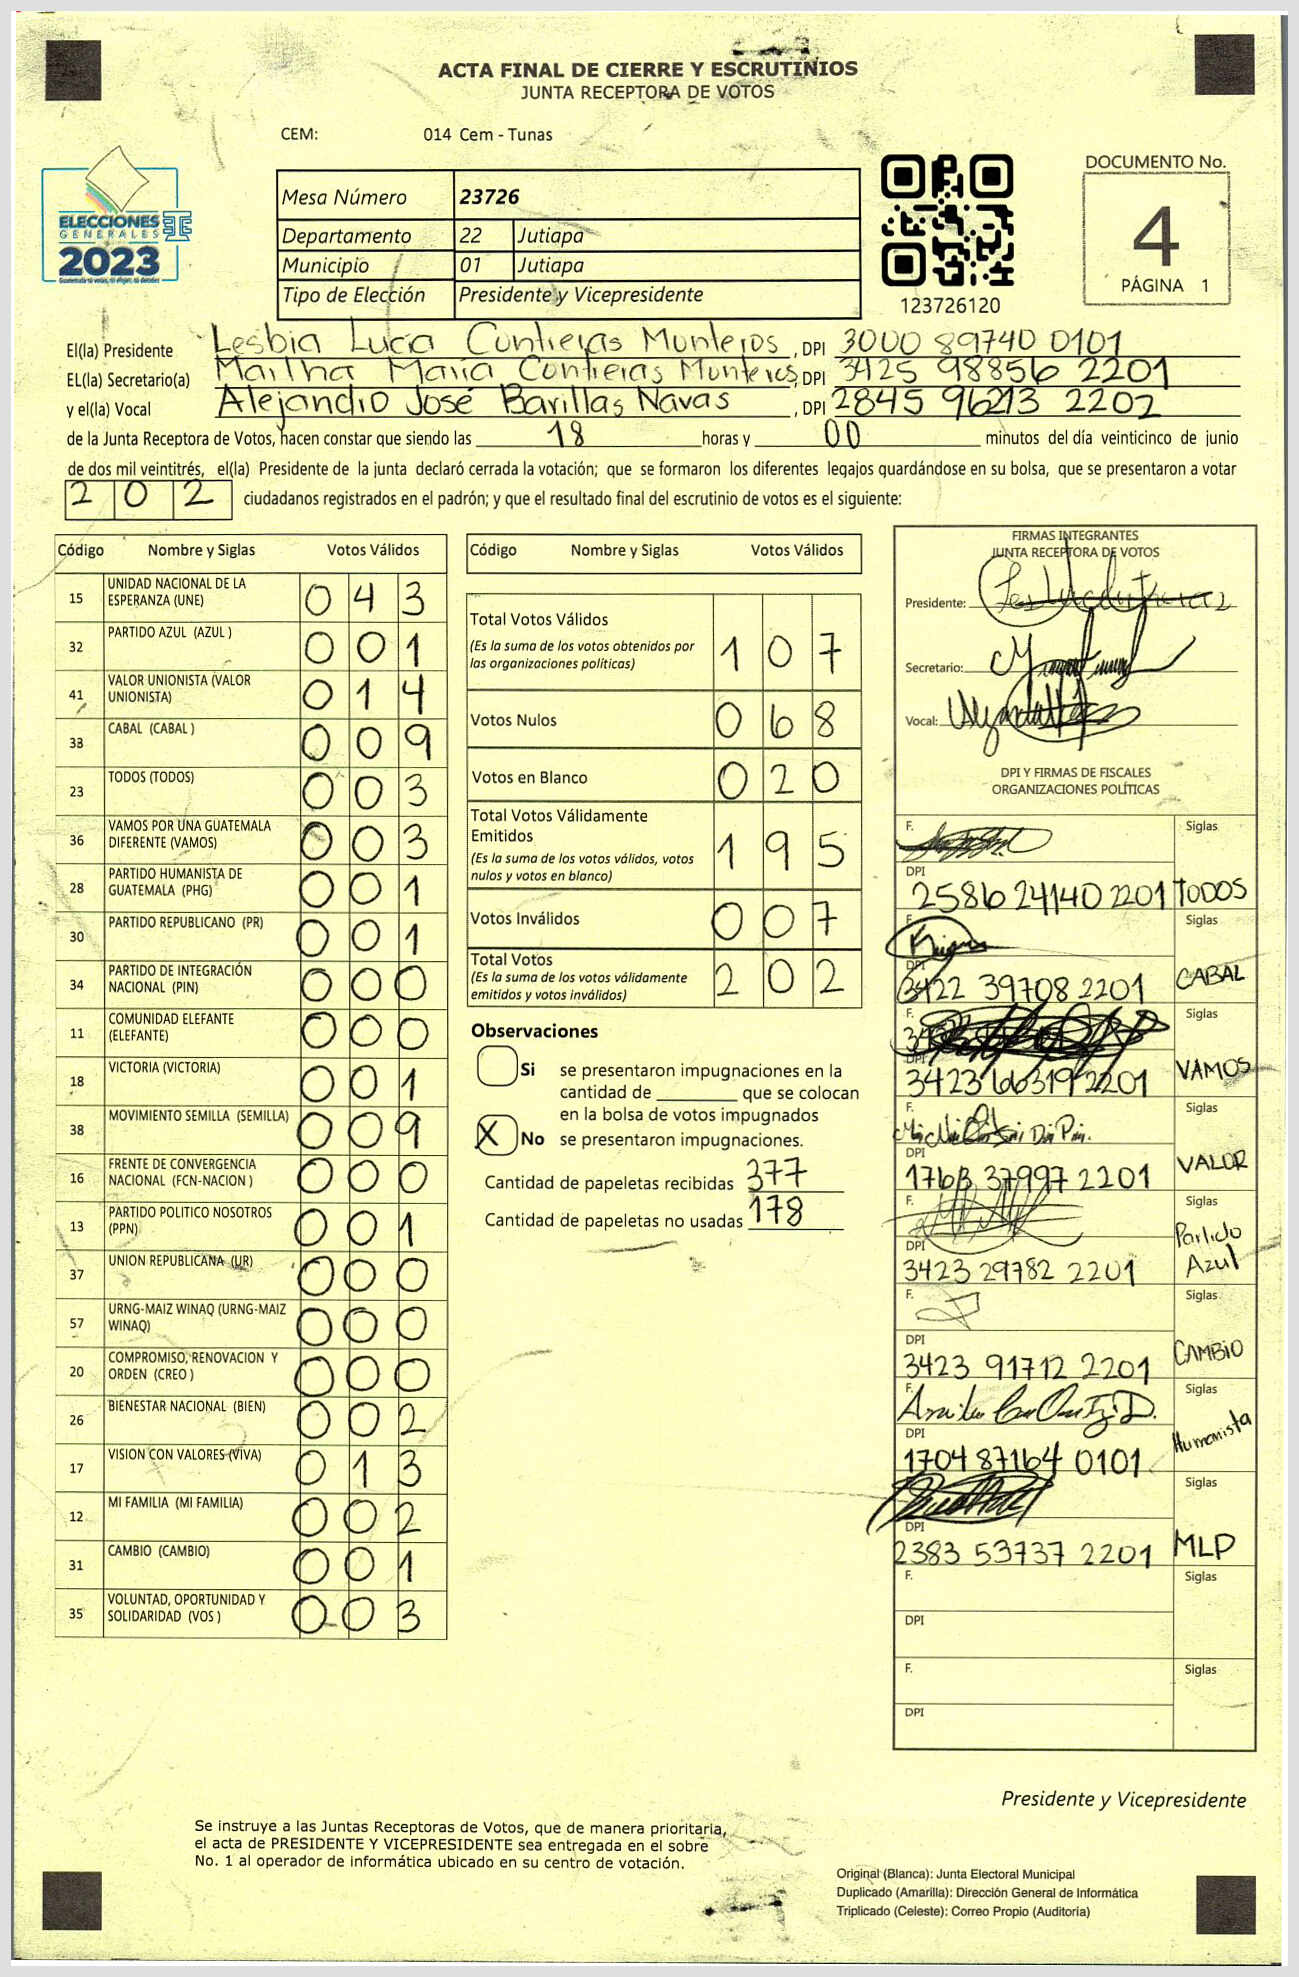 ACTA FINAL DE CIERRE Y ESCRUTINIOS
JUNTA RECEPTORA DE VOTOS
CEM: 014 Cem - Tunas
ELECCIONES
GENERALES
2023
Mesa Número 23726
Departamento 22 Jutiapa
Municipio 01 Jutiapa
Tipo de Elección Presidente y Vicepresidente
123726120
DOCUMENTO No.
4
PÁGINA 1
El(la) Presidente Lesbia Lucia Contreras Monteros, DPI 3000 89740 0101
EL(la) Secretario(a) Martha María Contreras Monteros, DPI 3425 98856 2201
y el(la) Vocal Alejandro José Barillas Navas, DPI 2845 96213 2202
de la Junta Receptora de Votos, hacen constar que siendo las 18 horas y 00 minutos del día veinticinco de junio
de dos mil veintitrés, el(la) Presidente de la junta declaró cerrada la votación; que se formaron los diferentes legajos guardándose en su bolsa, que se presentaron a votar
202 ciudadanos registrados en el padrón; y que el resultado final del escrutinio de votos es el siguiente:
Código Nombre y Siglas Votos Válidos
15 UNIDAD NACIONAL DE LA ESPERANZA (UNE) 043
32 PARTIDO AZUL (AZUL ) 001
41 VALOR UNIONISTA (VALOR UNIONISTA) 014
33 CABAL (CABAL ) 009
23 TODOS (TODOS) 003
36 VAMOS POR UNA GUATEMALA DIFERENTE (VAMOS) 003
28 PARTIDO HUMANISTA DE GUATEMALA (PHG) 001
30 PARTIDO REPUBLICANO (PR) 001
34 PARTIDO DE INTEGRACIÓN NACIONAL (PIN) 000
11 COMUNIDAD ELEFANTE (ELEFANTE) 000
18 VICTORIA (VICTORIA) 001
38 MOVIMIENTO SEMILLA (SEMILLA) 009
16 FRENTE DE CONVERGENCIA NACIONAL (FCN-NACION ) 000
13 PARTIDO POLITICO NOSOTROS (PPN) 001
37 UNION REPUBLICANA (UR) 000
57 URNG-MAIZ WINAQ (URNG-MAIZ WINAQ) 000
20 COMPROMISO, RENOVACION Y ORDEN (CREO ) 000
26 BIENESTAR NACIONAL (BIEN) 002
17 VISION CON VALORES (VIVA) 013
12 MI FAMILIA (MI FAMILIA) 002
31 CAMBIO (CAMBIO) 001
35 VOLUNTAD, OPORTUNIDAD Y SOLIDARIDAD (VOS ) 003
Código Nombre y Siglas Votos Válidos
Total Votos Válidos
(Es la suma de los votos obtenidos por las organizaciones políticas) 107
Votos Nulos 068
Votos en Blanco 020
Total Votos Válidamente Emitidos
(Es la suma de los votos válidos, votos nulos y votos en blanco) 195
Votos Inválidos 007
Total Votos
(Es la suma de los votos válidamente emitidos y votos inválidos) 202
Observaciones
Si se presentaron impugnaciones en la
cantidad de ________ que se colocan
en la bolsa de votos impugnados
X No se presentaron impugnaciones.
Cantidad de papeletas recibidas 377
Cantidad de papeletas no usadas 178
FIRMAS INTEGRANTES
JUNTA RECEPTORA DE VOTOS
Presidente:
Secretario:
Vocal:
DPI Y FIRMAS DE FISCALES
ORGANIZACIONES POLÍTICAS
F. Siglas
DPI
2586 24140 2201 TODOS
F. Siglas
DPI
3422 39708 2201 CABAL
F. Siglas
DPI
3423 66319 2201 VAMOS
F. Siglas
DPI
1763 37997 2201 VALOR
F. Siglas
DPI
3423 29782 2201 Partido Azul
F. Siglas
DPI
3423 91712 2201 CAMBIO
F. Siglas
DPI
1704 87164 0101 Humanista
Siglas
DPI
2383 53737 2201 MLP
F. Siglas
DPI
F. Siglas
DPI
Presidente y Vicepresidente
Se instruye a las Juntas Receptoras de Votos, que de manera prioritaria,
el acta de PRESIDENTE Y VICEPRESIDENTE sea entregada en el sobre
No. 1 al operador de informática ubicado en su centro de votación.
Original (Blanca): Junta Electoral Municipal
Duplicado (Amarilla): Dirección General de Informática
Triplicado (Celeste): Correo Propio (Auditoría)